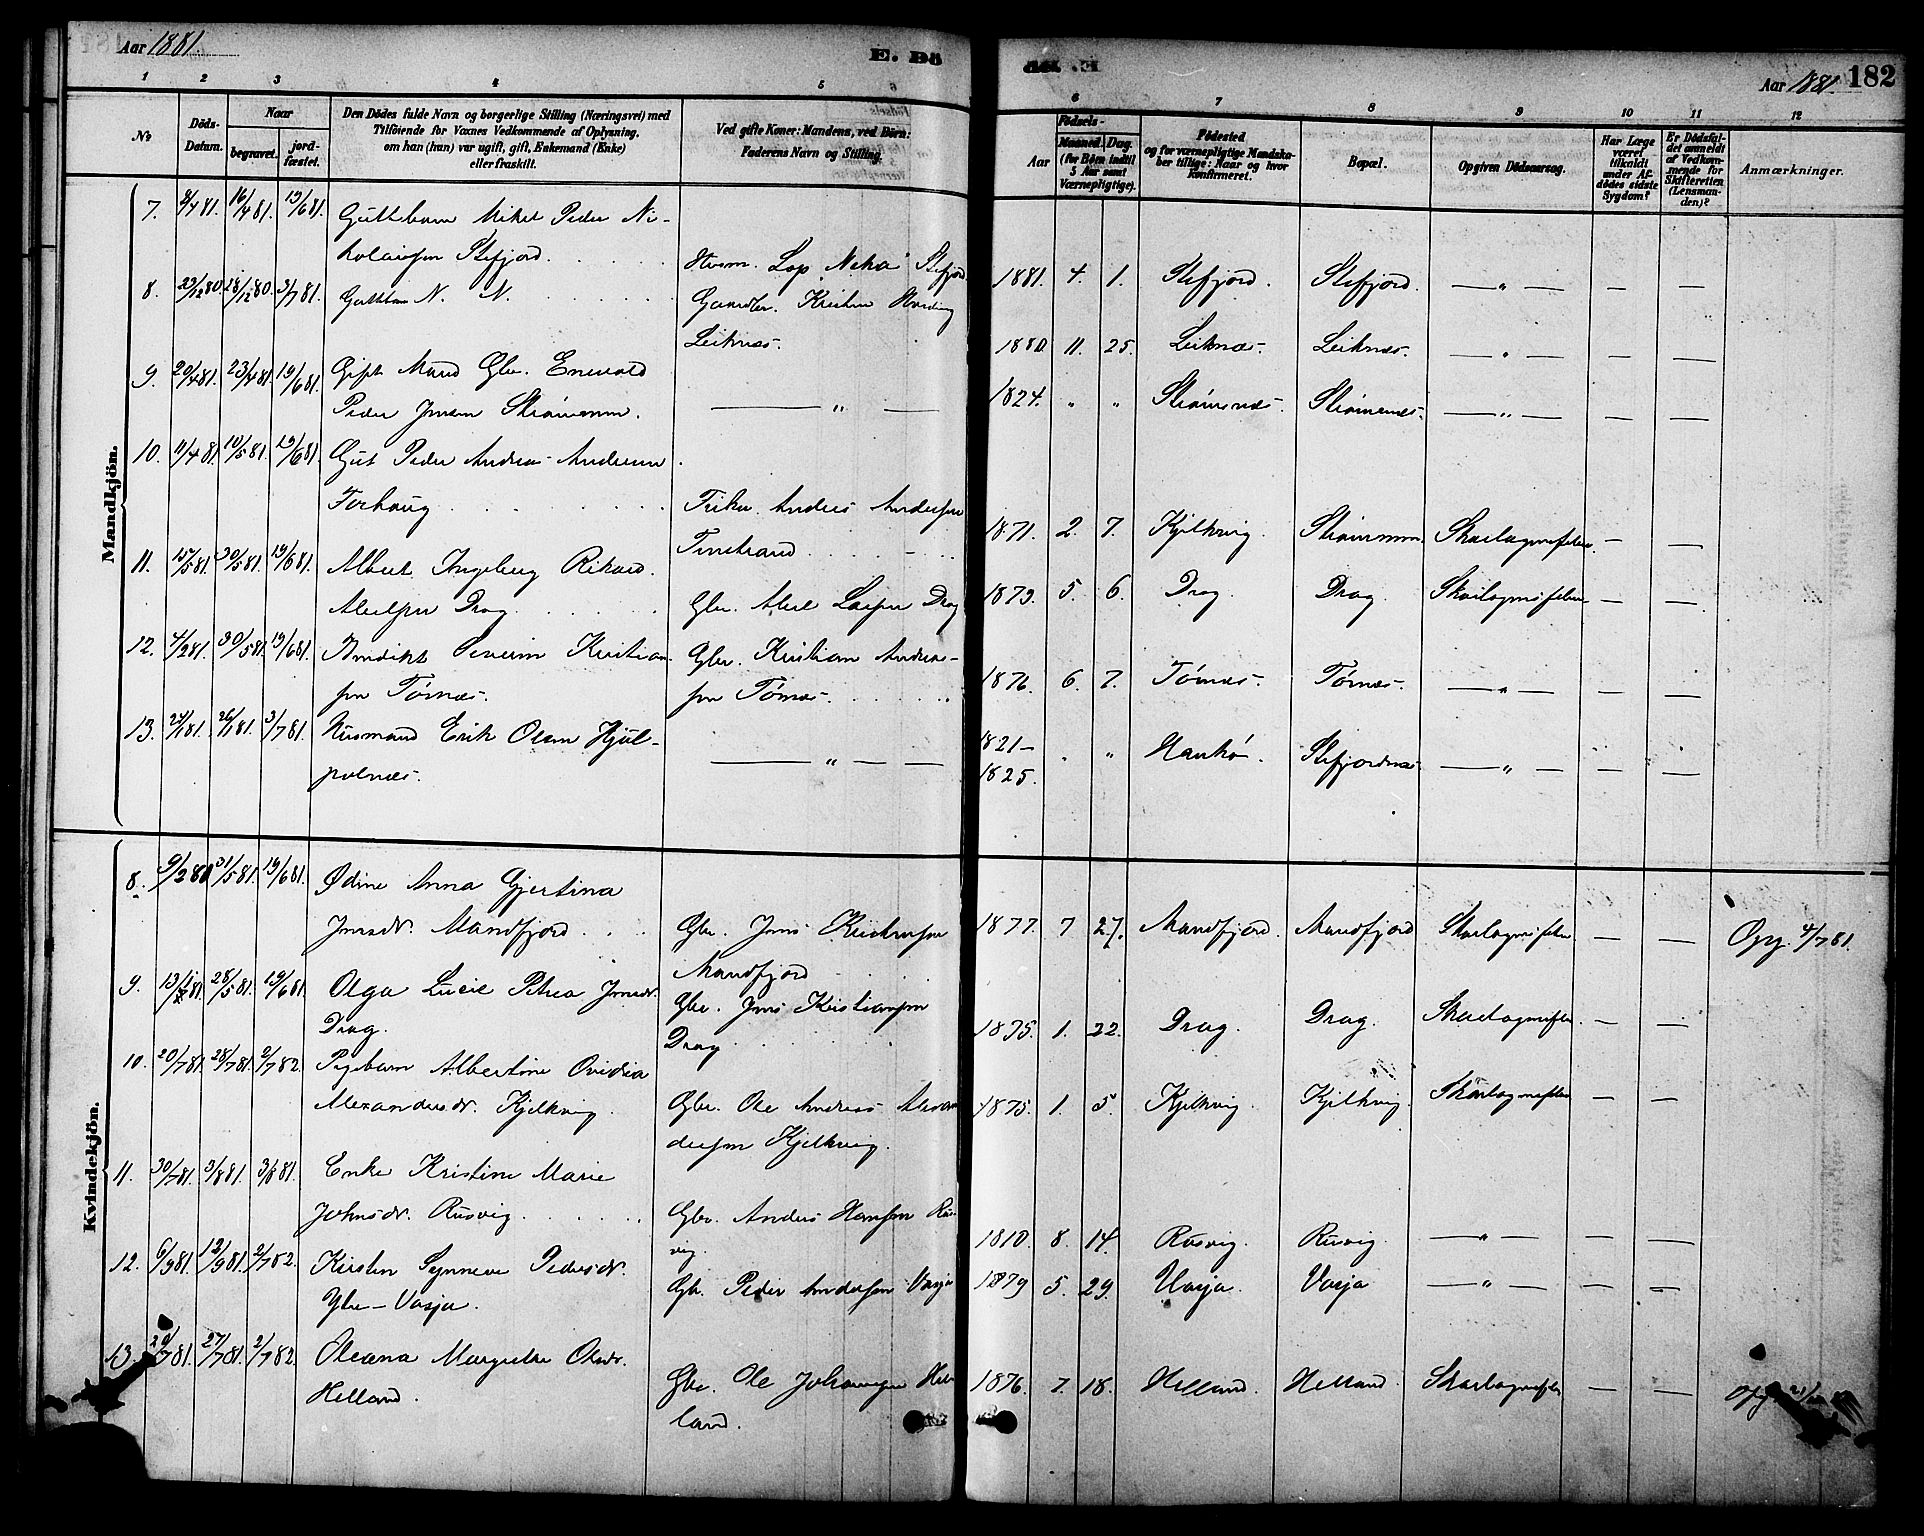 Aar 1881.
E. Dö
Aar 1881. 182
1 2 3 4 5 6 7 8 9 10 11 12
No
Döds-Datum.
Naar
begravet.
jord-fæstet.
Den Dödes fulde Navn og borgerlige Stilling (Næringsvei) med
Tilföiende for Voxnes Vedkommende af Oplysning,
om han (hun) var ugift, gift, Enkemand (Enke)
eller fraskilt.
Ved gifte Koner: Mandens, ved Börn:
Faderens Navn og Stilling.
Födsels-
Aar
Maaned. Dag.
(for Börn indtil
5 Aar samt
Værnepligtige).
Födested
og for værnepligtige Mandska-
ber tillige: Naar og hvor
konfirmeret.
Bopæl.
Opgiven Dödsaarsag.
Har Læge
været
tilkaldt
under Af-
dödes sidste
Sygdom?
Er Dödsfal-
det anmeldt
af Vedkom-
mende for
Skifteretten
(Lensman-
den)?
Anmærkninger.
Mandkjön.
7. 9/4 81. 16/4 81. 19/6 81. Guttebarn Mikel Peder Ni-
kolaisen Stefjord. Lap Stefjord 1881. 4. 1. Stefjord. Stefjord. — " — — —
8. 29/12 80. 28/12 80. 3/7 81. N. N. Kristen Hveding
Leiknes. 1880. 11. 25. Leiknes. Leiknes. — " — — —
9. 20/4 81. 23/4 81. 19/6 81. Gift Mand Gbr. Enevold
Peder Jensen Strømsnes. — " — 1824. " " Strømsnes. Strømsnes. — " — — —
10. 11/4 81. 10/5 81. 19/6 81. Gut Peder Andreas Andersen
Forhaug Anders Andersen
Finstrand 1871. 2. 7. Kjelkvig. Strømsnes Skarlagensfeber. — —
11. 15/5 81. 30/5 81. 19/6 81. Albert Ingeberg Rikard.
Abelsen Drag Gbr. Abel Larsen Drag 1873. 5. 6. Drag. Drag. Skarlagensfeber — —
12. 4/2 81. 30/5 81. 19/6 81. Bendikt Severin Kristian-
sen Tørnes. Gbr. Kristian Andreas-
sen Tørnes. 1876. 6. 7. Tørnes. Tørnes. — " — — —
13. 26/1 81. 3/7 81. Husmand Erik Olsen Hjul-
polnes. — " — — 1821–
1825. " " Stefjordnes — " — — —
Kvindekjön.
8. 9/2 81 31/5 81. 19/6 81. Ødine Anna Gjertina
Jensdr. Mandfjord. Gbr. Jens Kristensen
Mandfjord 1877. 7 27. Mandfjord. Mandfjord Skarlagensfeber — — Opg. 4/7 81.
9. 28/5 81. 19/6 81. Olga Lucie Petrea Jensdr.
Drag. Gbr. Jens Kristiansen
Drag 1875. 1. 22. Drag. Drag. Skarlagensfeber. — —
10. 20/7 81. 28/7 81. 2/7 82. Pigebarn Albertine Ovidia
Alexandersdr. Kjelkvig. Gbr. Ole Andreas Alexan
dersen Kjelkvig. 1875. 1. 5. Kjelkvig. Kjelkvig. Skarlagensfeber — —
11. 30/7 81. 3/8 81. 3/8 81. Enke Kristine Marie
Johnsdr. Rusvig. Gbr. Anders Hansen Rus-
vig. 1810. 8. 14. Rusvig. Rusvig. — " — — —
12. 6/9 81. 12/9 81. 2/7 82. Kirsten Synneve Pedersdr.
Ytre-Vasja. Gbr. Peder Andersen Vasja 1879 5. 29. Vasja. Vasja — " — — —
13. 20/7 81. 27/7 81. 2/7 82. Oleana Margrethe Olsdr.
Helland. Gbr. Ole Johannesen Hel-
land. 1876. 7. 18. Helland. Helland. Skarlagensfeber — — Opg.